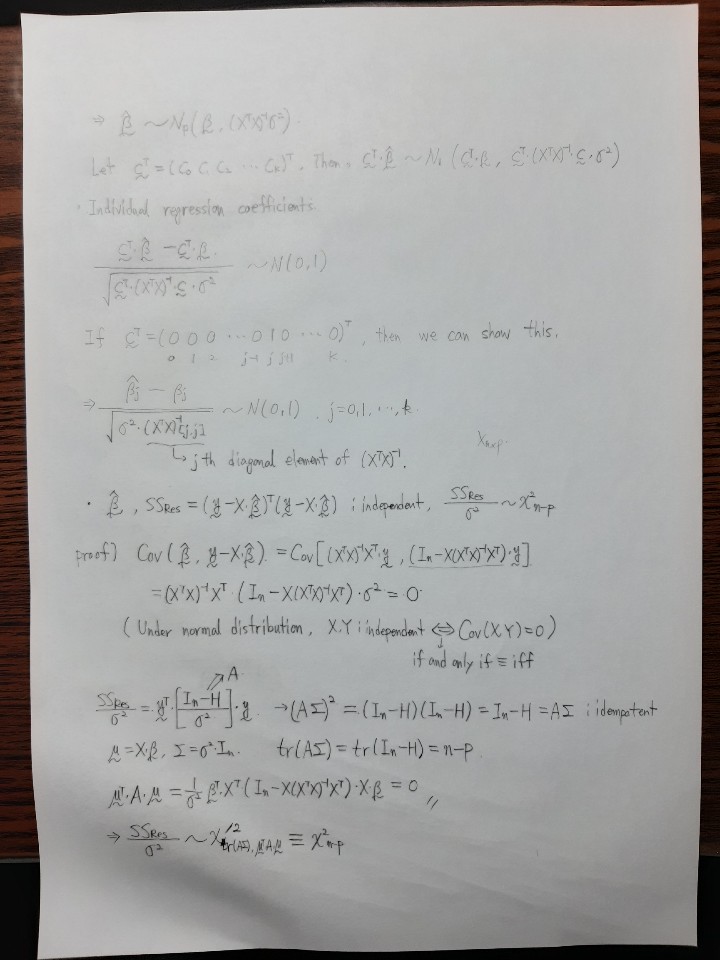 ⇒ β̂ ~ N_p(β, (XᵀX)⁻¹σ²).
Let c̰ᵀ = (C₀ C₁ C₂ ⋯ C_k)ᵀ. Then, c̰ᵀ·β̂ ~ N₁(c̰ᵀ·β, c̰ᵀ·(XᵀX)⁻¹·c̰·σ²)
· Individual regression coefficients
(c̰ᵀ·β̂ − c̰ᵀ·β) / √(c̰ᵀ·(XᵀX)⁻¹·c̰·σ²) ~ N(0,1)
If c̰ᵀ = (0 0 0 ⋯ 0 1 0 ⋯ 0)ᵀ, then we can show this.
0 1 2 j-1 j j+1 k
⇒ (β̂j − βj) / √(σ²·(XᵀX)⁻¹[j,j]) ~ N(0,1), j=0,1,⋯,k.
X_{n×p}
↳ j-th diagonal element of (XᵀX)⁻¹.
· β̂, SS_Res = (y−X·β̂)ᵀ(y−X·β̂) ; independent, SS_Res/σ² ~ χ²_{n-p}
proof) Cov(β̂, y−X·β̂) = Cov[(XᵀX)⁻¹Xᵀ·y, (I_n−X(XᵀX)⁻¹Xᵀ)·y]
= (XᵀX)⁻¹Xᵀ·(I_n−X(XᵀX)⁻¹Xᵀ)·σ² = 0
(Under normal distribution, X,Y ; independent ⇔ Cov(X,Y)=0)
if and only if ≡ iff
A
SS_Res/σ² = yᵀ·[(I_n−H)/σ²]·y → (AΣ)² = (I_n−H)(I_n−H) = I_n−H = AΣ ; idempotent
μ = X·β, Σ = σ²·I_n. tr(AΣ) = tr(I_n−H) = n-p
μᵀ·A·μ = 1/σ² βᵀ·Xᵀ(I_n−X(XᵀX)⁻¹Xᵀ)·X·β = 0 〃
⇒ SS_Res/σ² ~ χ'²_{tr(AΣ), μᵀAμ} ≡ χ²_{n-p}